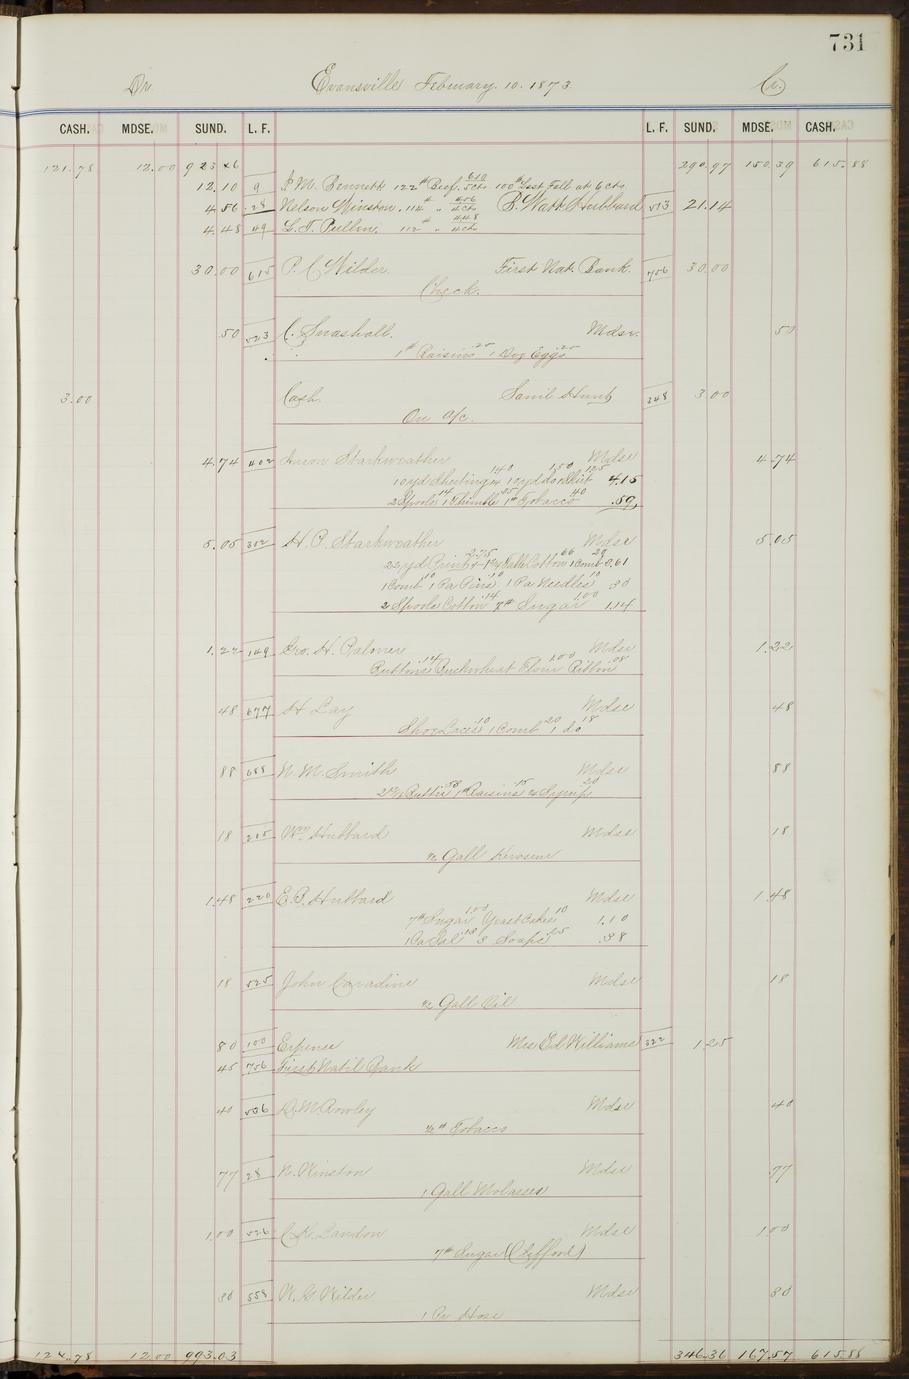 731
Dr. Evansville February. 10. 1873. Cr.
CASH. MDSE. SUND. L. F. L. F. SUND. MDSE. CASH.
121.78 12.00 923 46 290.97 150.39 615.88
12.10 9 J. M. Bennett 122 # Beef. 5cts 6.10 100 # Last Fall at 6 cts
4.56 28 Nelson Winston. 114 # " 4cts 4.56 S. Watt Hubbard 513 21.14
4.48 49 L. T. Pullen. 112 # " 4cts 4.48
30.00 615 P. C. Wilder. First Nat. Bank. 756 30.00
Check.
50 523 C. Snashall. Mdse. 50
1 # Raisins 25 1 Doz Eggs 25
3.00 Cash. Saml Hunt 248 3.00
On a/c.
4.74 402 Starkweather Mdse 4.74
10 yd Sheeting 1.40 10 yd do 1.50 1.25 4.15
2 Spools 14 1 Thimble 05 1 # Tobacco 40 .59
5.05 302 H. P. Starkweather Mdse 5.05
22 yd Print 2.75 Cotton 66 1 Comb 20 3.61
1 Comb 10 1 Pa Pins 10 1 Pa Needles 10 30
2 Spools Cotton 14 7 # Sugar 1.00 1.14
1.22 149 Geo. H. Mdse 1.22
Buttons 14 Buckwheat Flour 1.00 Ribbon 08
48 677 H Lay Mdse 48
Shoe Laces 10 1 Comb 20 1 do 18
88 688 N. M. Smith Mdse 88
Butter 53 1 # Raisins 15 Syrup 20
18 215 Wm. Hubbard Mdse 18
½ Gall Kerosene
1.48 220 E. P. Hubbard Mdse 1.48
7 # Sugar 1.00 Yeast Cakes 10 1.10
1 Pa Sal 13 3 Soaps 25 .38
18 525 John Caradine Mdse 18
½ Gall Oil
80 100 Expense Mrs Ed Williams 322 1.25
45 756 First Nat'l Bank
40 506 D. M. Rowley Mdse 40
½ # Tobacco
77 28 N. Winston Mdse .77
1 Gall Molasses
1.00 526 C. H. Landon Mdse 1.00
7 # Sugar (Clifford)
30 558 W. G. Wilder Mdse 30
1 Pr Hose
124.78 12.00 993.03 346.36 167.57 615.88